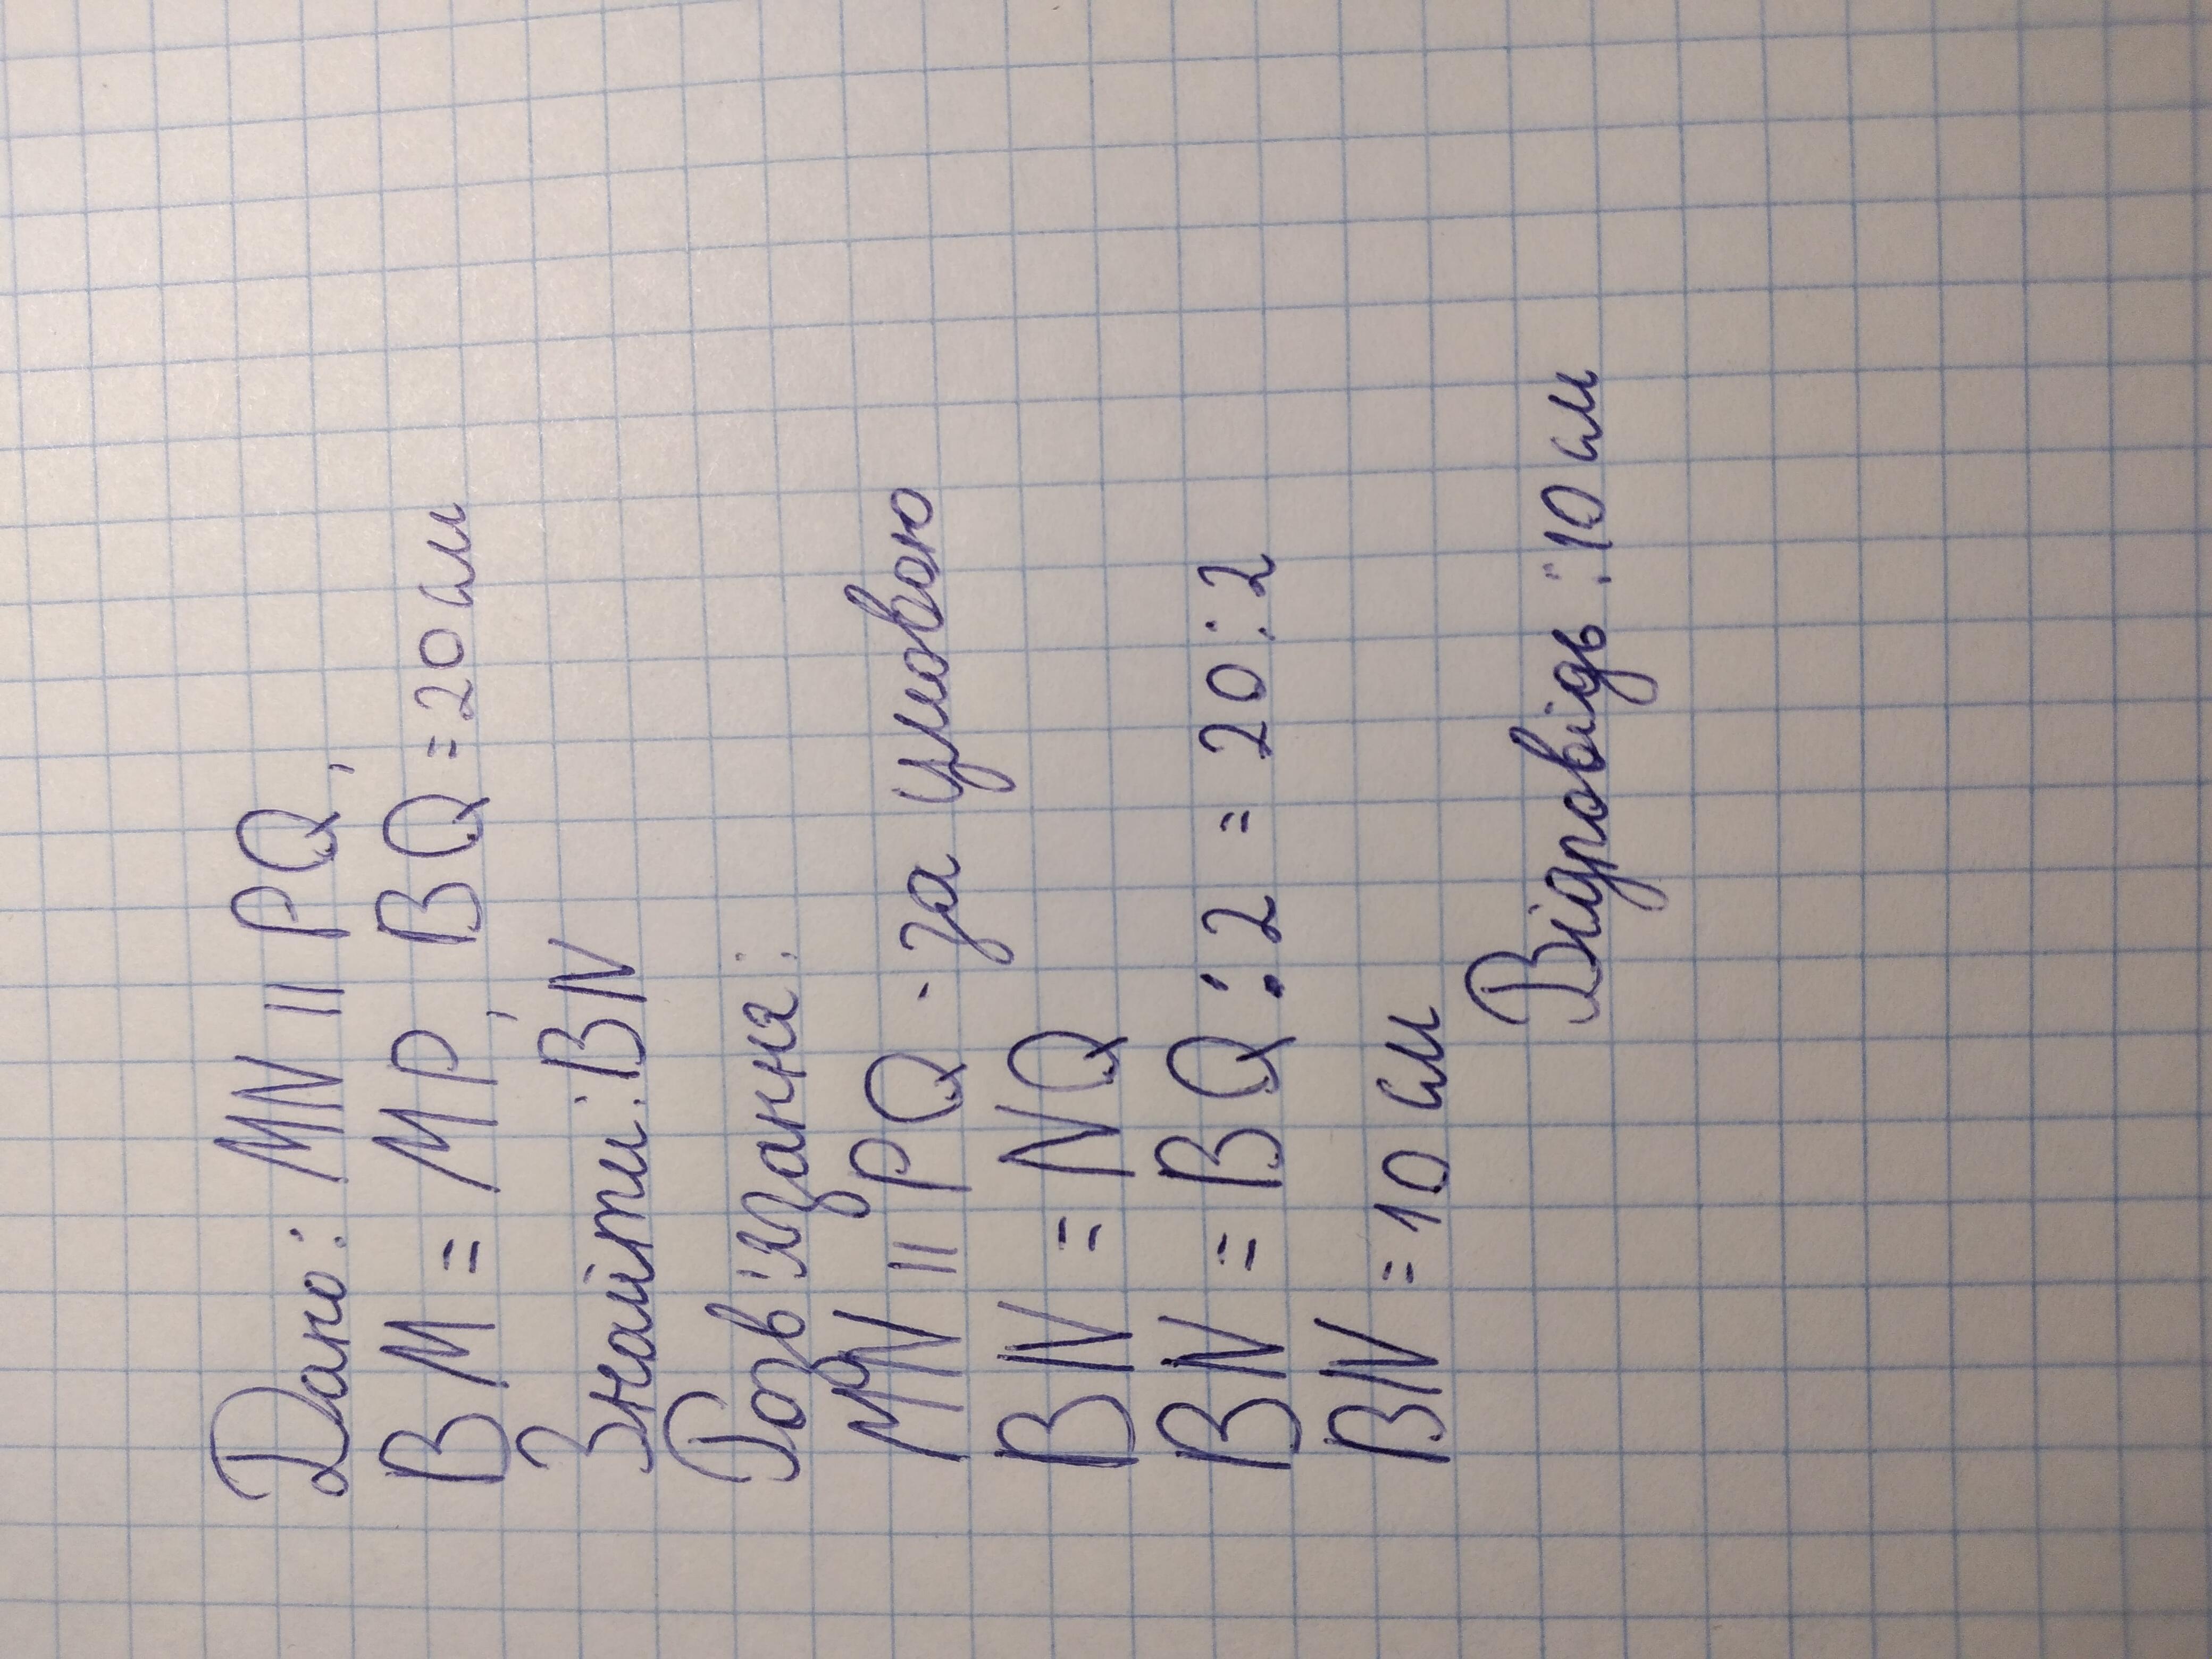 Дано: MN || PQ,
BM = MP, BQ = 20 см
Знайти: BN
Розв'язання:
MN || PQ - за умовою
BN = NQ
BN = BQ : 2 = 20 : 2
BN = 10 см
Відповідь: 10 см